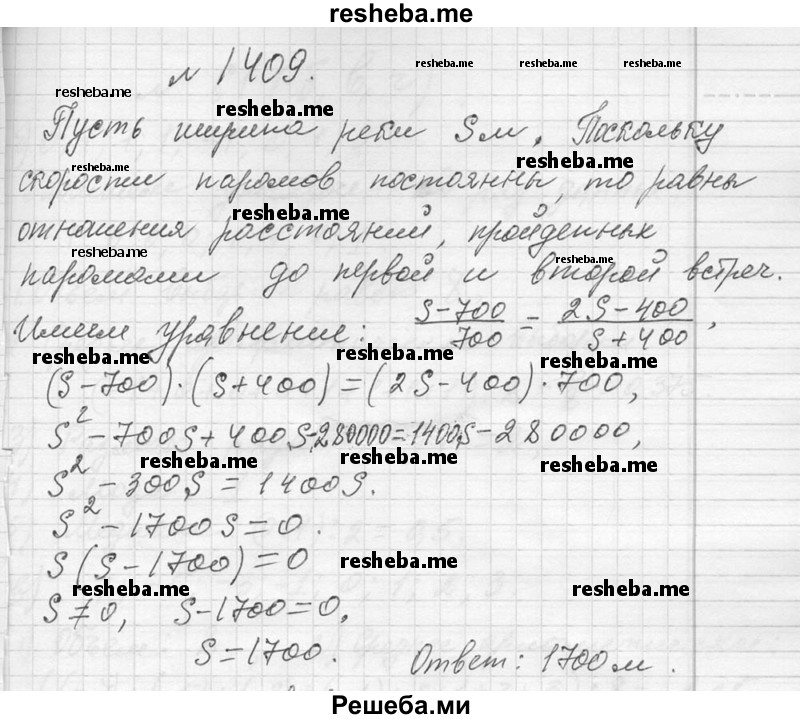 resheba.me
№ 1409.
resheba.me resheba.me resheba.me
resheba.me
resheba.me
Пусть ширина реки S м, Поскольку
resheba.me
resheba.me
скорости паромов постоянны, то равны
resheba.me
отношения расстояний, пройденных
resheba.me
паромами до первой и второй встреч.
Имеем уравнение: (S-700)/700 = (2S-400)/(S+400),
resheba.me resheba.me resheba.me
(S-700)·(S+400)=(2S-400)·700,
S²-700S+400S-280000=1400S-280000,
resheba.me resheba.me resheba.me
S²-300S=1400S.
S²-1700S=0.
S(S-1700)=0
resheba.me
resheba.me resheba.me
S≠0, S-1700=0,
S=1700. Ответ: 1700м.
Решеба.ми